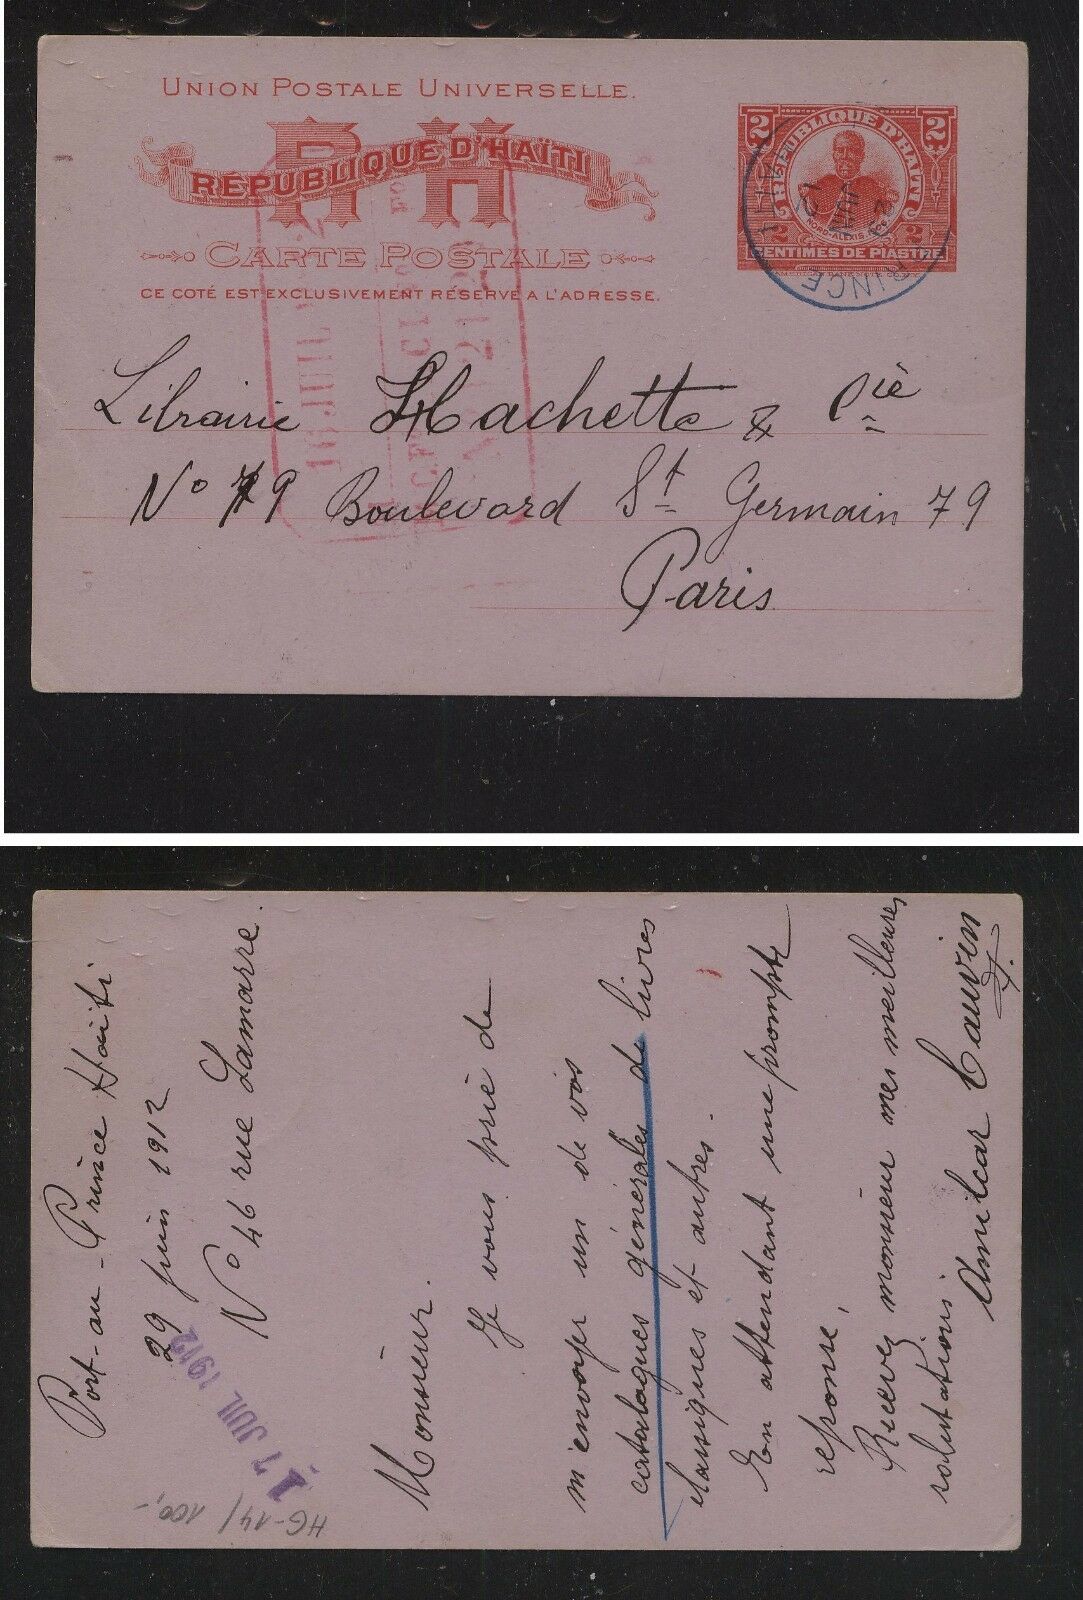 UNION POSTALE UNIVERSELLE.
RH
RÉPUBLIQUE D'HAÏTI
CARTE POSTALE
CE COTÉ EST EXCLUSIVEMENT RÉSERVÉ A L'ADRESSE.
2 2
RÉPUBLIQUE D'HAITI
NORD-ALEXIS
2 2
CENTIMES DE PIASTRE
PRINCE
JUIN
12
16 JUIL
Librairie Hachette & Cie
No 79 Boulevard St Germain 79
Paris
Port-au-Prince Haïti
29 juin 1912
No 46 rue Lamarre.
17 JUIL 1912
HG-14/100,-
Monsieur.
Je vous prie de
m'envoyer un de vos
catalogues générales de livres
classiques et autres.
En attendant une prompte
reponse,
Recevez monsieur mes meilleures
salutations
Amilcar Cauvin